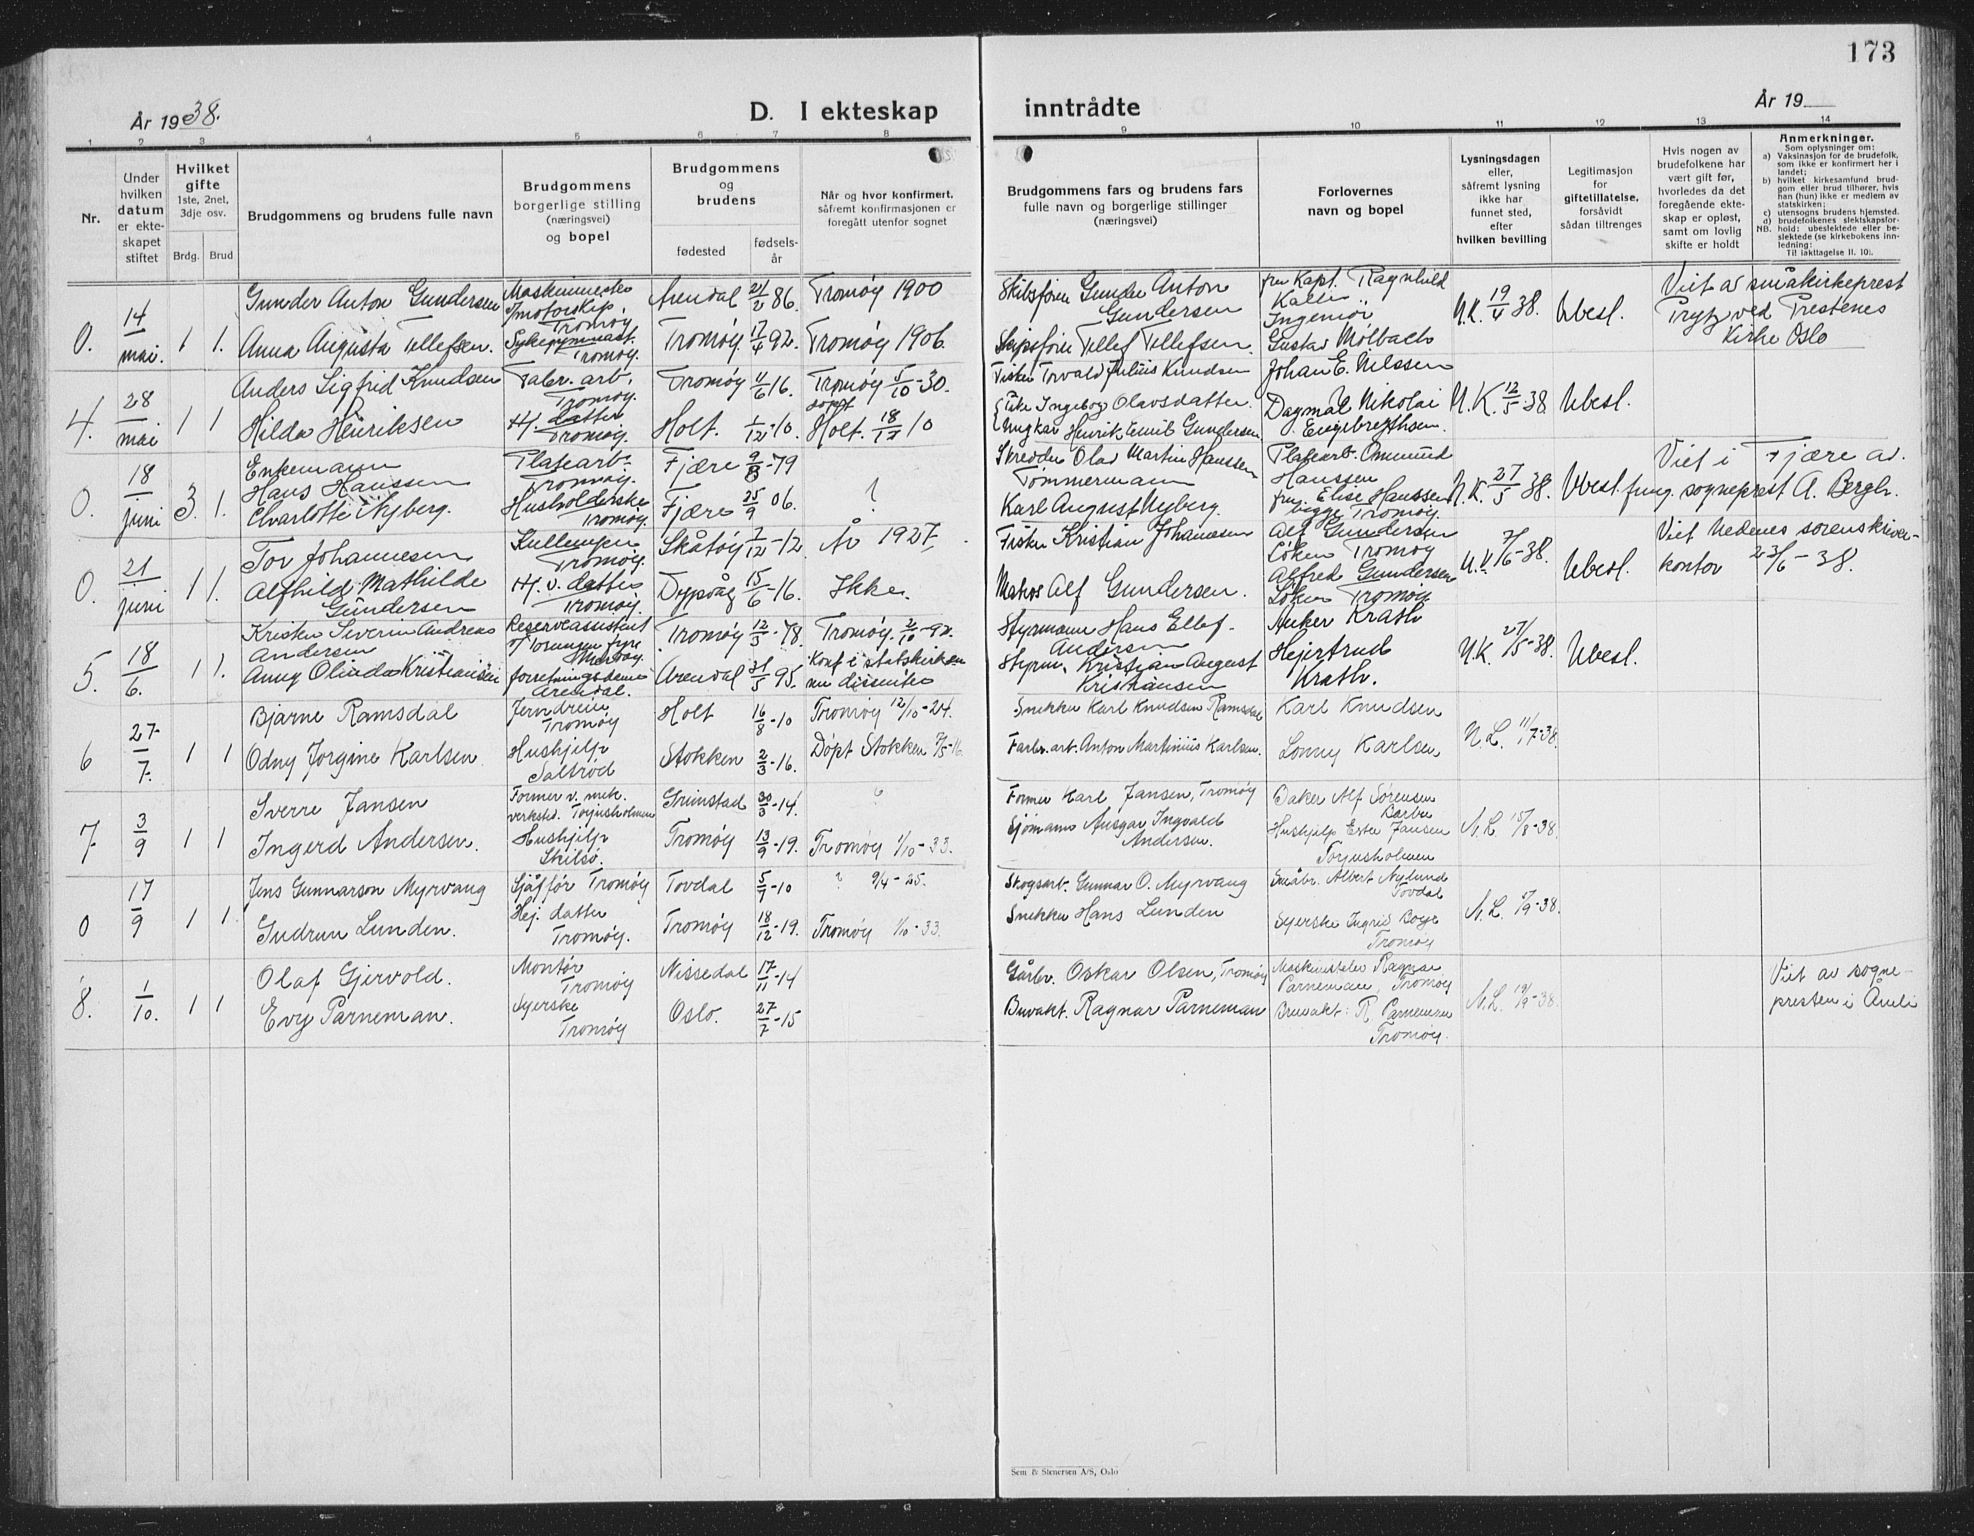 173
År 1938.
D. I ekteskap inntrådte
År 19
1 2 3 4 5 6 7 8 9 10 11 12 13 14
Nr.
Under
hvilken
datum
er ekte-
skapet
stiftet
Hvilket
gifte
1ste, 2net,
3dje osv.
Brdg. Brud
Brudgommens og brudens fulle navn
Brudgommens
borgerlige stilling
(næringsvei)
og bopel
Brudgommens
og
brudens
fødested
fødsels-
år
Når og hvor konfirmert,
såfremt konfirmasjonen er
foregått utenfor sognet
Brudgommens fars og brudens fars
fulle navn og borgerlige stillinger
(næringsvei)
Forlovernes
navn og bopel
Lysningsdagen
eller,
såfremt lysning
ikke har
funnet sted,
efter
hvilken bevilling
Legitimasjon
for
giftetillatelse,
forsåvidt
sådan tiltrenges
Hvis nogen av
brudefolkene har
vært gift før,
hvorledes da det
foregående ekte-
skap er opløst,
samt om lovlig
skifte er holdt
Anmerkninger.
Som oplysninger om:
a) Vaksinasjon for de brudefolk,
som ikke er konfirmert her i
landet;
b) hvilket kirkesamfund brud-
gom eller brud tilhører, hvis
han (hun) ikke er medlem av
statskirken;
c) utensogns brudens hjemsted.
d) brudefolkenes slektskapsfor-
hold: ubeslektede eller be-
slektede (se kirkebokens inn-
ledning:
NB. Til iakttagelse II. 10).
0. 14/mai 1 1.
Gunder Anton Gundersen
Maskinmester
motorskip
Tromøy
Arendal 21/2 86 Tromøy 1900
Skibsfører Gunder Anton
Gundersen
fru Kapt. Ragnhild
Kallin
N.K. 19/4 38. Ubesl.
Viet av småkirkeprest
Prytz ved Prestenes
Kirke Oslo
Anna Augusta Tellefsen.
Sykegymnast.
Tromøy.
Tromøy 17/4 92. Tromøy 1906.
Skipsfører Tellef Tellefsen.
Ingeniør
Gustav Mølbach
4. 28/mai 1 1
Anders Sigfrid Knudsen
Fabr. arb.
Tromøy.
Tromøy 11/6 16. Tromøy 5/10-30.
Fisker Torvald Julius Knudsen
Johan E. Nilssen
N.K. 12/5 38 Ubesl.
Hilda Henriksen
H. datter
Tromøy.
Holt. 1/12-10. døpt Holt. 18/12 10
Pike Ingeborg Olavsdatter.
Ungkar Henrik Emil Gundersen
Dagmar Nikolai
Engebrethsen.
0. 18/juni 3. 1.
Enkemann
Hans Hanssen
Platearb.
Tromøy.
Fjære 9/8-79
Skredder Olav Martin Hanssen
Platearb. Ommund
Hanssen
N.K. 27/5 38. Ubesl.
Viet i Fjære av
fung. sogneprest A. Bergh.
Charlotte Nyberg.
Husholderske
Tromøy
Fjære 25/9 06. ?
Tømmermann
Karl August Nyberg.
fru. Elise Hanssen
begge Tromøy.
0. 21/juni 1 1.
Tor Johannesen
Kullemper
Tromøy.
Skåtøy 7/12-12 År 1927.
Fisker Kristian Johanesen
Alf Gundersen
Løken Tromøy
N.V. 7/6-38. Ubesl.
Viet Nedenes sorenskriver-
kontor 23/6-38.
Alfhild Mathilde
Gundersen
H. v. datter
Tromøy.
Dypvåg 15/6-16. Ikke.
Matros Alf Gundersen.
Alfred Gundersen
Løken Tromøy
5. 18/6. 1 1.
Kristen Severin Andreas
Andersen
Reserveassistent
v/ Torungen fyr
Tromøy 12/3-78. Tromøy. 2/10-92.
Styrmann Hans Ellef.
Andersen
Anker Krath
N.K. 27/5-38. Ubesl.
Anny Olinda Kristiansen
forretningsdame
Arendal.
Arendal 31/5 95. Konf i statskirken
nu dissenter
Styrm. Kristian August
Kristiansen
Hejertrud
Krath.
6 27/7. 1 1
Bjarne Ramsdal
Jerndreier
Tromøy
Holt 16/8-10 Tromøy 12/10-24.
Snekker Karl Knudsen Ramsdal
Karl Knudsen
N.L. 11/7-38.
Odny Jorgine Karlsen
Hushjelp
Saltrød
Stokken 2/3-16. Døpt Stokken 7/5-16.
Farbr. arb. Anton Martinius Karlsen.
Lonny Karlsen
7. 3/9 1 1
Sverre Jansen
Former v. mek.
verksted. Torjusholmen
Grimstad 30/3-14. ?
Former Karl Jansen, Tromøy
Baker Alf Sørensen
Barbu
N.L. 15/8-38.
Ingerd Andersen.
Hushjelp
Skilsø.
Tromøy 13/9-19. Tromøy 1/10-33.
Sjømann Ansgar Ingvald
Andersen.
Hushjelp Ester Jansen
Torjusholmen
0 17/9 1 1
Jens Gunnarson Myrvang
Sjåfør Tromøy
Tovdal 5/9-10 ? 9/4-25.
Skogsarb. Gunnar O. Myrvang
Småbr. Albert Nylund
Tovdal
N.L. 1/9-38.
Gudrun Lunden.
Hej. datter
Tromøy.
Tromøy 18/12-19. Tromøy 1/10-33.
Snekker Hans Lunden
Syerske Ingrid Boye
Tromøy
8. 1/10. 1 1
Olaf Gjervold.
Montør
Tromøy
Nissedal 17/11-14
Gårbr. Oskar Olsen, Tromøy
Maskinsteler Ragnar
Parneman, Tromøy
N.L. 19/9-38.
Viet av sogne-
presten i Åmli
Evy Parneman.
Syerske
Tromøy
Oslo. 27/7-15
Buvakt. Ragnar Parneman
Bruvakt: R. Parneman
Tromøy.
Sem & Stenersen A/S, Oslo